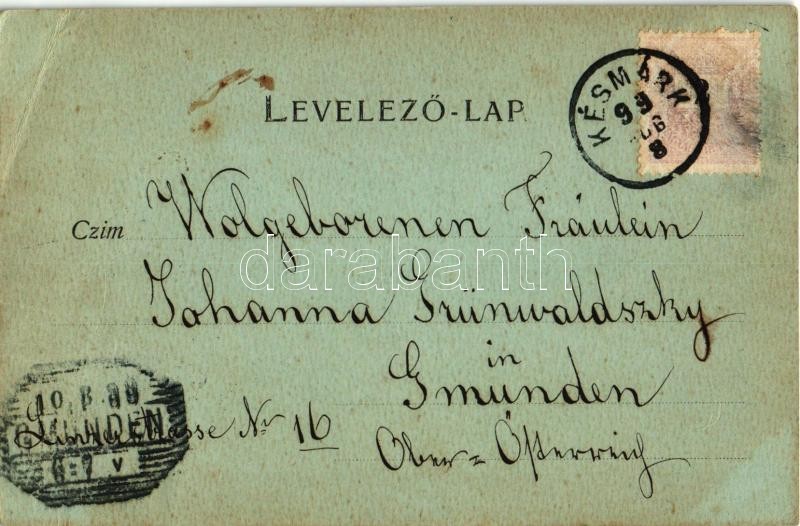 LEVELEZŐ-LAP
KÉSMÁRK
99
8
Czim Wolgeborenen Fräulein
darabanth
Johanna Grünwaldszky
in
Gmunden
10.8.99
GMUNDEN
6-7 V
Linzerstrasse Nr 16
Ober-Österreich